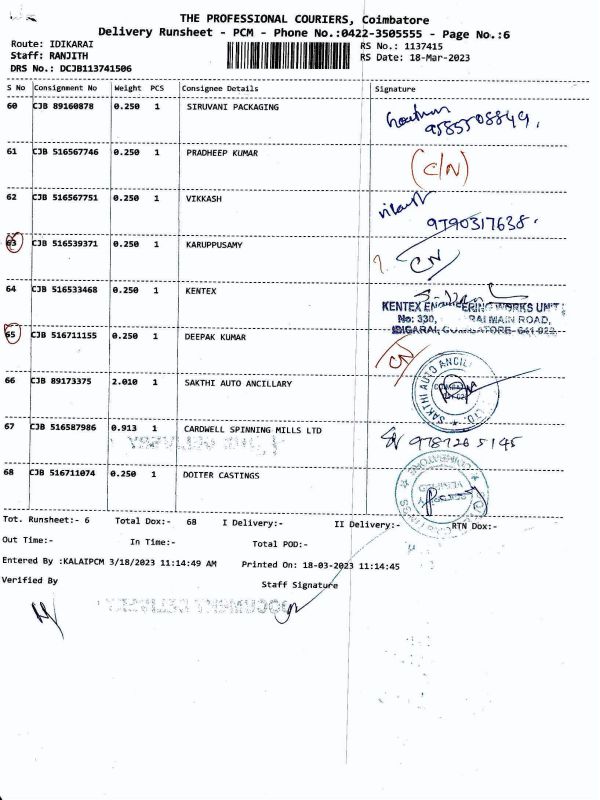 THE PROFESSIONAL COURIERS, Coimbatore
Delivery Runsheet - PCM - Phone No.:0422-3505555 - Page No.:6
Route: IDIKARAI RS No.: 1137415
Staff: RANJITH RS Date: 18-Mar-2023
DRS No.: DCJB113741506
S No Consignment No Weight PCS Consignee Details Signature
60 CJB 89160878 0.250 1 SIRUVANI PACKAGING
9585508849.
61 CJB 516567746 0.250 1 PRADHEEP KUMAR (C/N)
62 CJB 516567751 0.250 1 VIKKASH
9790317638.
63 CJB 516539371 0.250 1 KARUPPUSAMY CN
64 CJB 516533468 0.250 1 KENTEX
KENTEX ENGINEERING WORKS UNIT
No: 330, MAIN ROAD,
65 CJB 516711155 0.250 1 DEEPAK KUMAR CN
66 CJB 89173375 2.010 1 SAKTHI AUTO ANCILLARY
SAKTHI AUTO ANCILLARY
67 CJB 516587986 0.913 1 CARDWELL SPINNING MILLS LTD
68 CJB 516711074 0.250 1 DOITER CASTINGS
Tot. Runsheet:- 6 Total Dox:- 68 I Delivery:- II Delivery:- RTN Dox:-
Out Time:- In Time:- Total POD:-
Entered By :KALAIPCM 3/18/2023 11:14:49 AM Printed On: 18-03-2023 11:14:45
Verified By Staff Signature